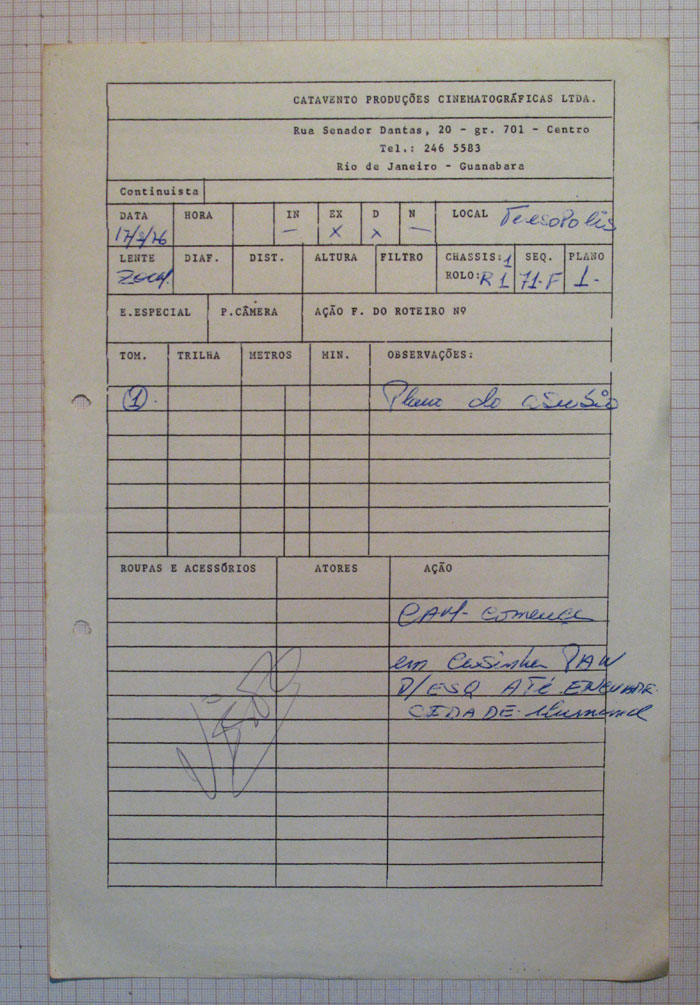 CATAVENTO PRODUÇÕES CINEMATOGRÁFICAS LTDA.
Rua Senador Dantas, 20 - gr. 701 - Centro
Tel.: 246 5583
Rio de Janeiro - Guanabara
Continuista
DATA HORA IN EX D N LOCAL Teresopolis
— X X —
LENTE DIAF. DIST. ALTURA FILTRO CHASSIS: 1 SEQ. PLANO
ROLO: R 1 71-F 1-
E.ESPECIAL P.CÂMERA AÇÃO F. DO ROTEIRO Nº
TOM. TRILHA METROS MIN. OBSERVAÇÕES:
1. Plano do
ROUPAS E ACESSÓRIOS ATORES AÇÃO
CAM- começa
em Casinha PAN
D/ESQ ATÉ
CIDADE-